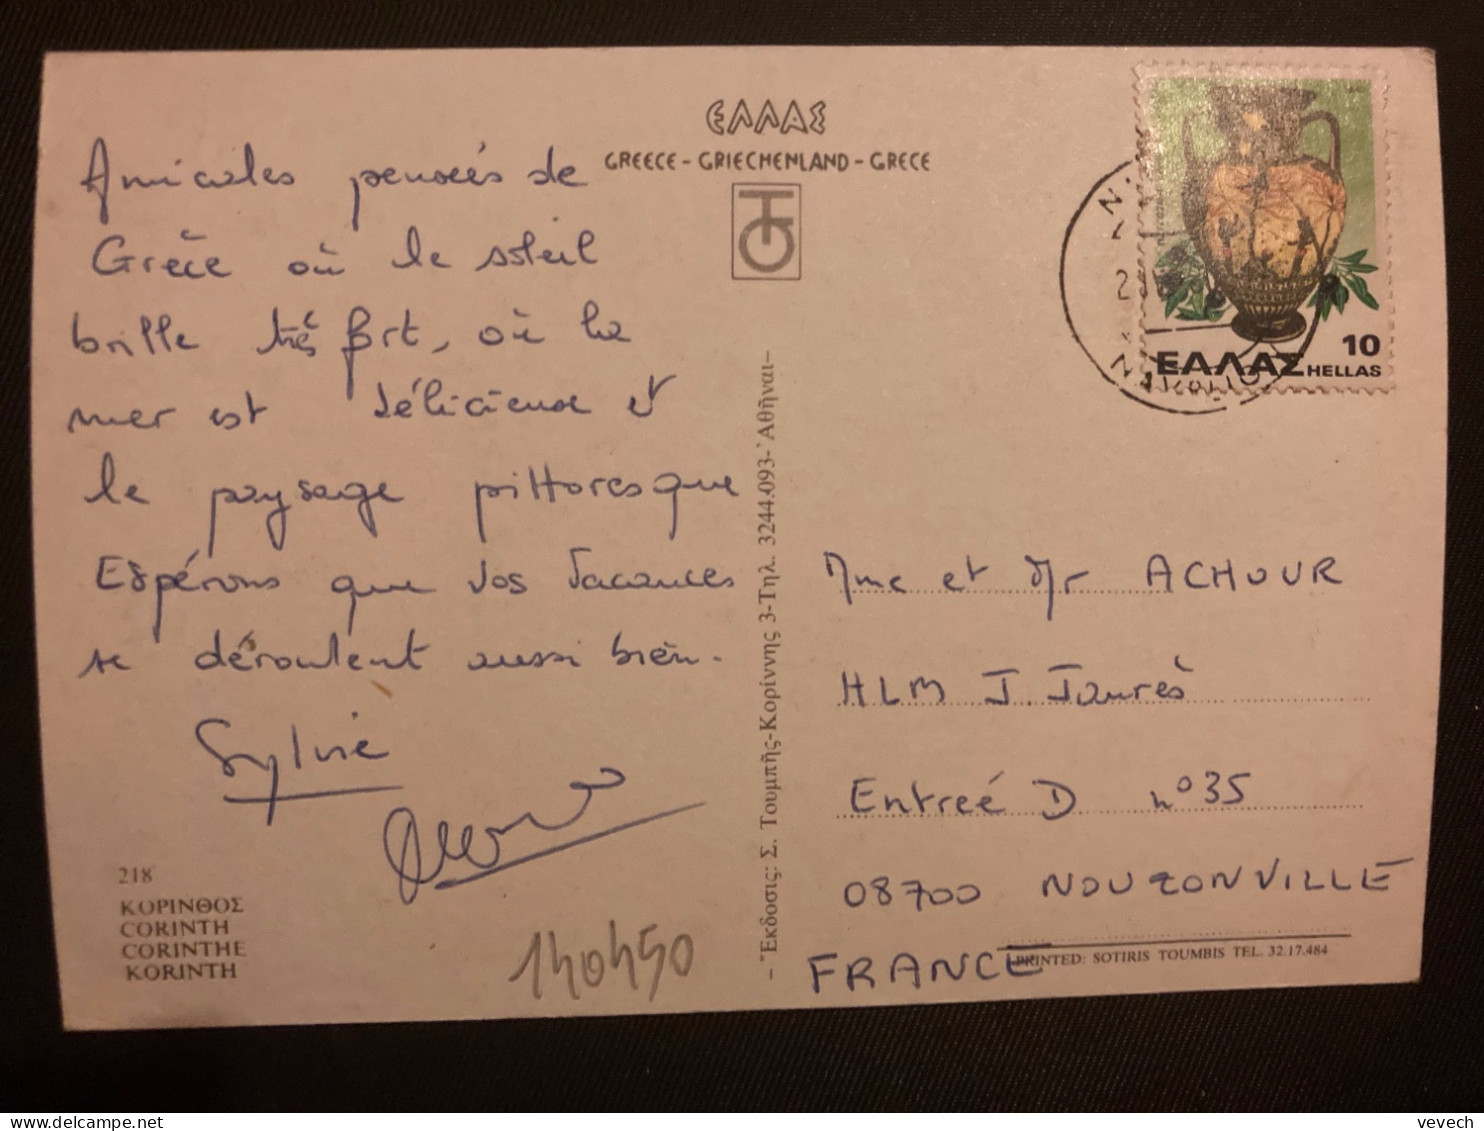 ΕΛΛΑΣ
GREECE - GRIECHENLAND - GRECE
Amicales pensées de
Grèce où le soleil
brille très fort, où la
mer est délicieuse et
le paysage pittoresque
Espérons que vos vacances
se déroulent aussi bien.
Sylvie
218
ΚΟΡΙΝΘΟΣ
CORINTH
CORINTHE
KORINTH
140450
– Ἔκδοσις: Σ. Τουμπῆς-Κορίννης 3-Τηλ. 3244.093-Ἀθῆναι–
10
ΕΛΛΑΣ HELLAS
Mme et Mr ACHOUR
HLM J. Jaurès
Entreé D n° 35
08700 NOUZONVILLE
FRANCE
PRINTED: SOTIRIS TOUMBIS TEL. 32.17.484
vevech